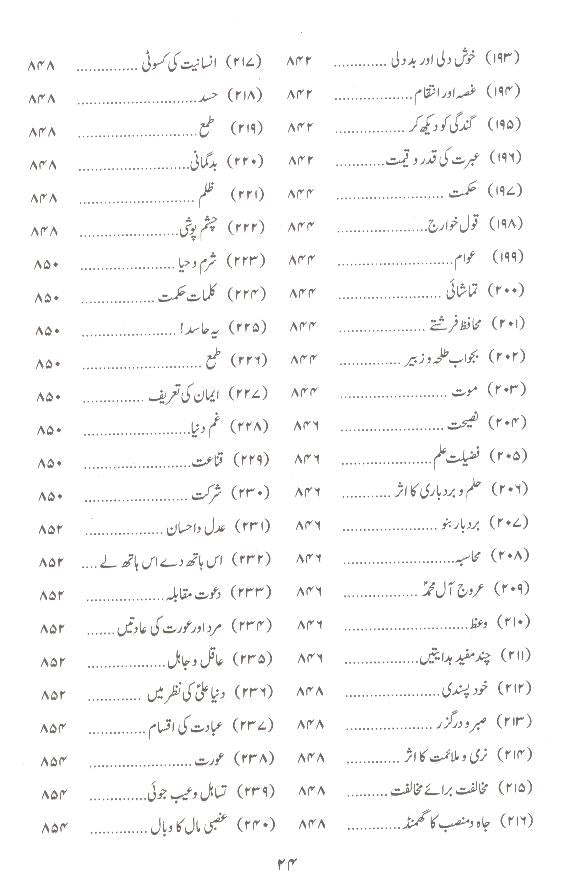 (۱۹۳) خوش دلی اور بد دلی .............. ۸۴۲
(۱۹۴) غصہ اور انتقام .............. ۸۴۲
(۱۹۵) گندگی کو دیکھ کر .............. ۸۴۲
(۱۹۶) عبرت کی قدر و قیمت .............. ۸۴۲
(۱۹۷) حکمت .............. ۸۴۴
(۱۹۸) قول خوارج .............. ۸۴۴
(۱۹۹) عوام .............. ۸۴۴
(۲۰۰) تماشائی .............. ۸۴۴
(۲۰۱) محافظ فرشتے .............. ۸۴۴
(۲۰۲) بجواب طلحہ و زبیر .............. ۸۴۴
(۲۰۳) موت .............. ۸۴۴
(۲۰۴) نصیحت .............. ۸۴۶
(۲۰۵) فضیلت علم .............. ۸۴۶
(۲۰۶) حلم و بردباری کا اثر .............. ۸۴۶
(۲۰۷) بردبار بنو .............. ۸۴۶
(۲۰۸) محاسبہ .............. ۸۴۶
(۲۰۹) عروج آل محمدؐ .............. ۸۴۶
(۲۱۰) وعظ .............. ۸۴۶
(۲۱۱) چند مفید ہدایتیں .............. ۸۴۶
(۲۱۲) خود پسندی .............. ۸۴۸
(۲۱۳) صبر و درگزر .............. ۸۴۸
(۲۱۴) نرمی و ملائمت کا اثر .............. ۸۴۸
(۲۱۵) مخالفت برائے مخالفت .............. ۸۴۸
(۲۱۶) جاہ و منصب کا گھمنڈ .............. ۸۴۸
(۲۱۷) انسانیت کی کسوٹی .............. ۸۴۸
(۲۱۸) حسد .............. ۸۴۸
(۲۱۹) طمع .............. ۸۴۸
(۲۲۰) بدگمانی .............. ۸۴۸
(۲۲۱) ظلم .............. ۸۴۸
(۲۲۲) چشم پوشی .............. ۸۴۸
(۲۲۳) شرم و حیا .............. ۸۵۰
(۲۲۴) کلمات حکمت .............. ۸۵۰
(۲۲۵) یہ حاسد! .............. ۸۵۰
(۲۲۶) طمع .............. ۸۵۰
(۲۲۷) ایمان کی تعریف .............. ۸۵۰
(۲۲۸) غم دنیا .............. ۸۵۰
(۲۲۹) قناعت .............. ۸۵۰
(۲۳۰) شرکت .............. ۸۵۰
(۲۳۱) عدل و احسان .............. ۸۵۲
(۲۳۲) اس ہاتھ دے اس ہاتھ لے .... ۸۵۲
(۲۳۳) دعوت مقابلہ .............. ۸۵۲
(۲۳۴) مرد اور عورت کی عادتیں .............. ۸۵۲
(۲۳۵) عاقل و جاہل .............. ۸۵۲
(۲۳۶) دنیا علیؑ کی نظر میں .............. ۸۵۲
(۲۳۷) عبادت کی اقسام .............. ۸۵۴
(۲۳۸) عورت .............. ۸۵۴
(۲۳۹) تساہل و عیب جوئی .............. ۸۵۴
(۲۴۰) غصبی مال کا وبال .............. ۸۵۴
۲۴